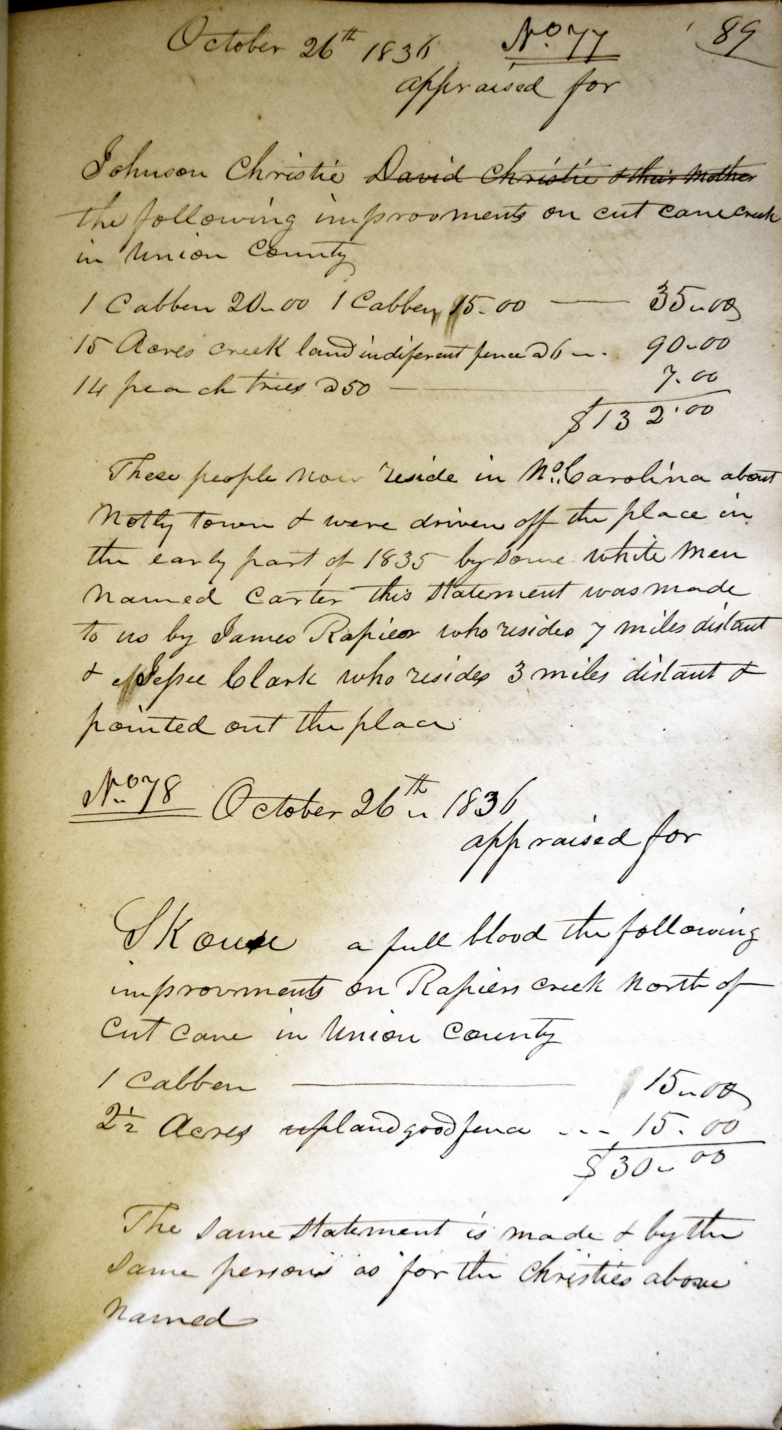 October 26th 1836 No. 77 89
appraised for
Johnson Christie David Christie & their Mother
the following improvments on cut cane creek
in Union County
1 Cabben 20..00 1 Cabben 15.00 — 35..00
15 Acres creek land indiferent fence @ 6 .. 90..00
14 peach trees @ 50 — 7.00
$132.00
These people now reside in No. Carolina about
Notly town & were driven off the place in
the early part of 1835 by some white men
named Carter this statement was made
to us by James Rapier who resides 7 miles distant
& Jessee Clark who resides 3 miles distant &
pointed out the place
No. 78 October 26th 1836
appraised for
a full blood the following
improvments on Rapiers creek North of
cut cane in Union County
1 cabben — 15..00
2½ Acres upland good fence ... 15.00
$30..00
The same statement is made & by the
same persons as for the Christies above
named